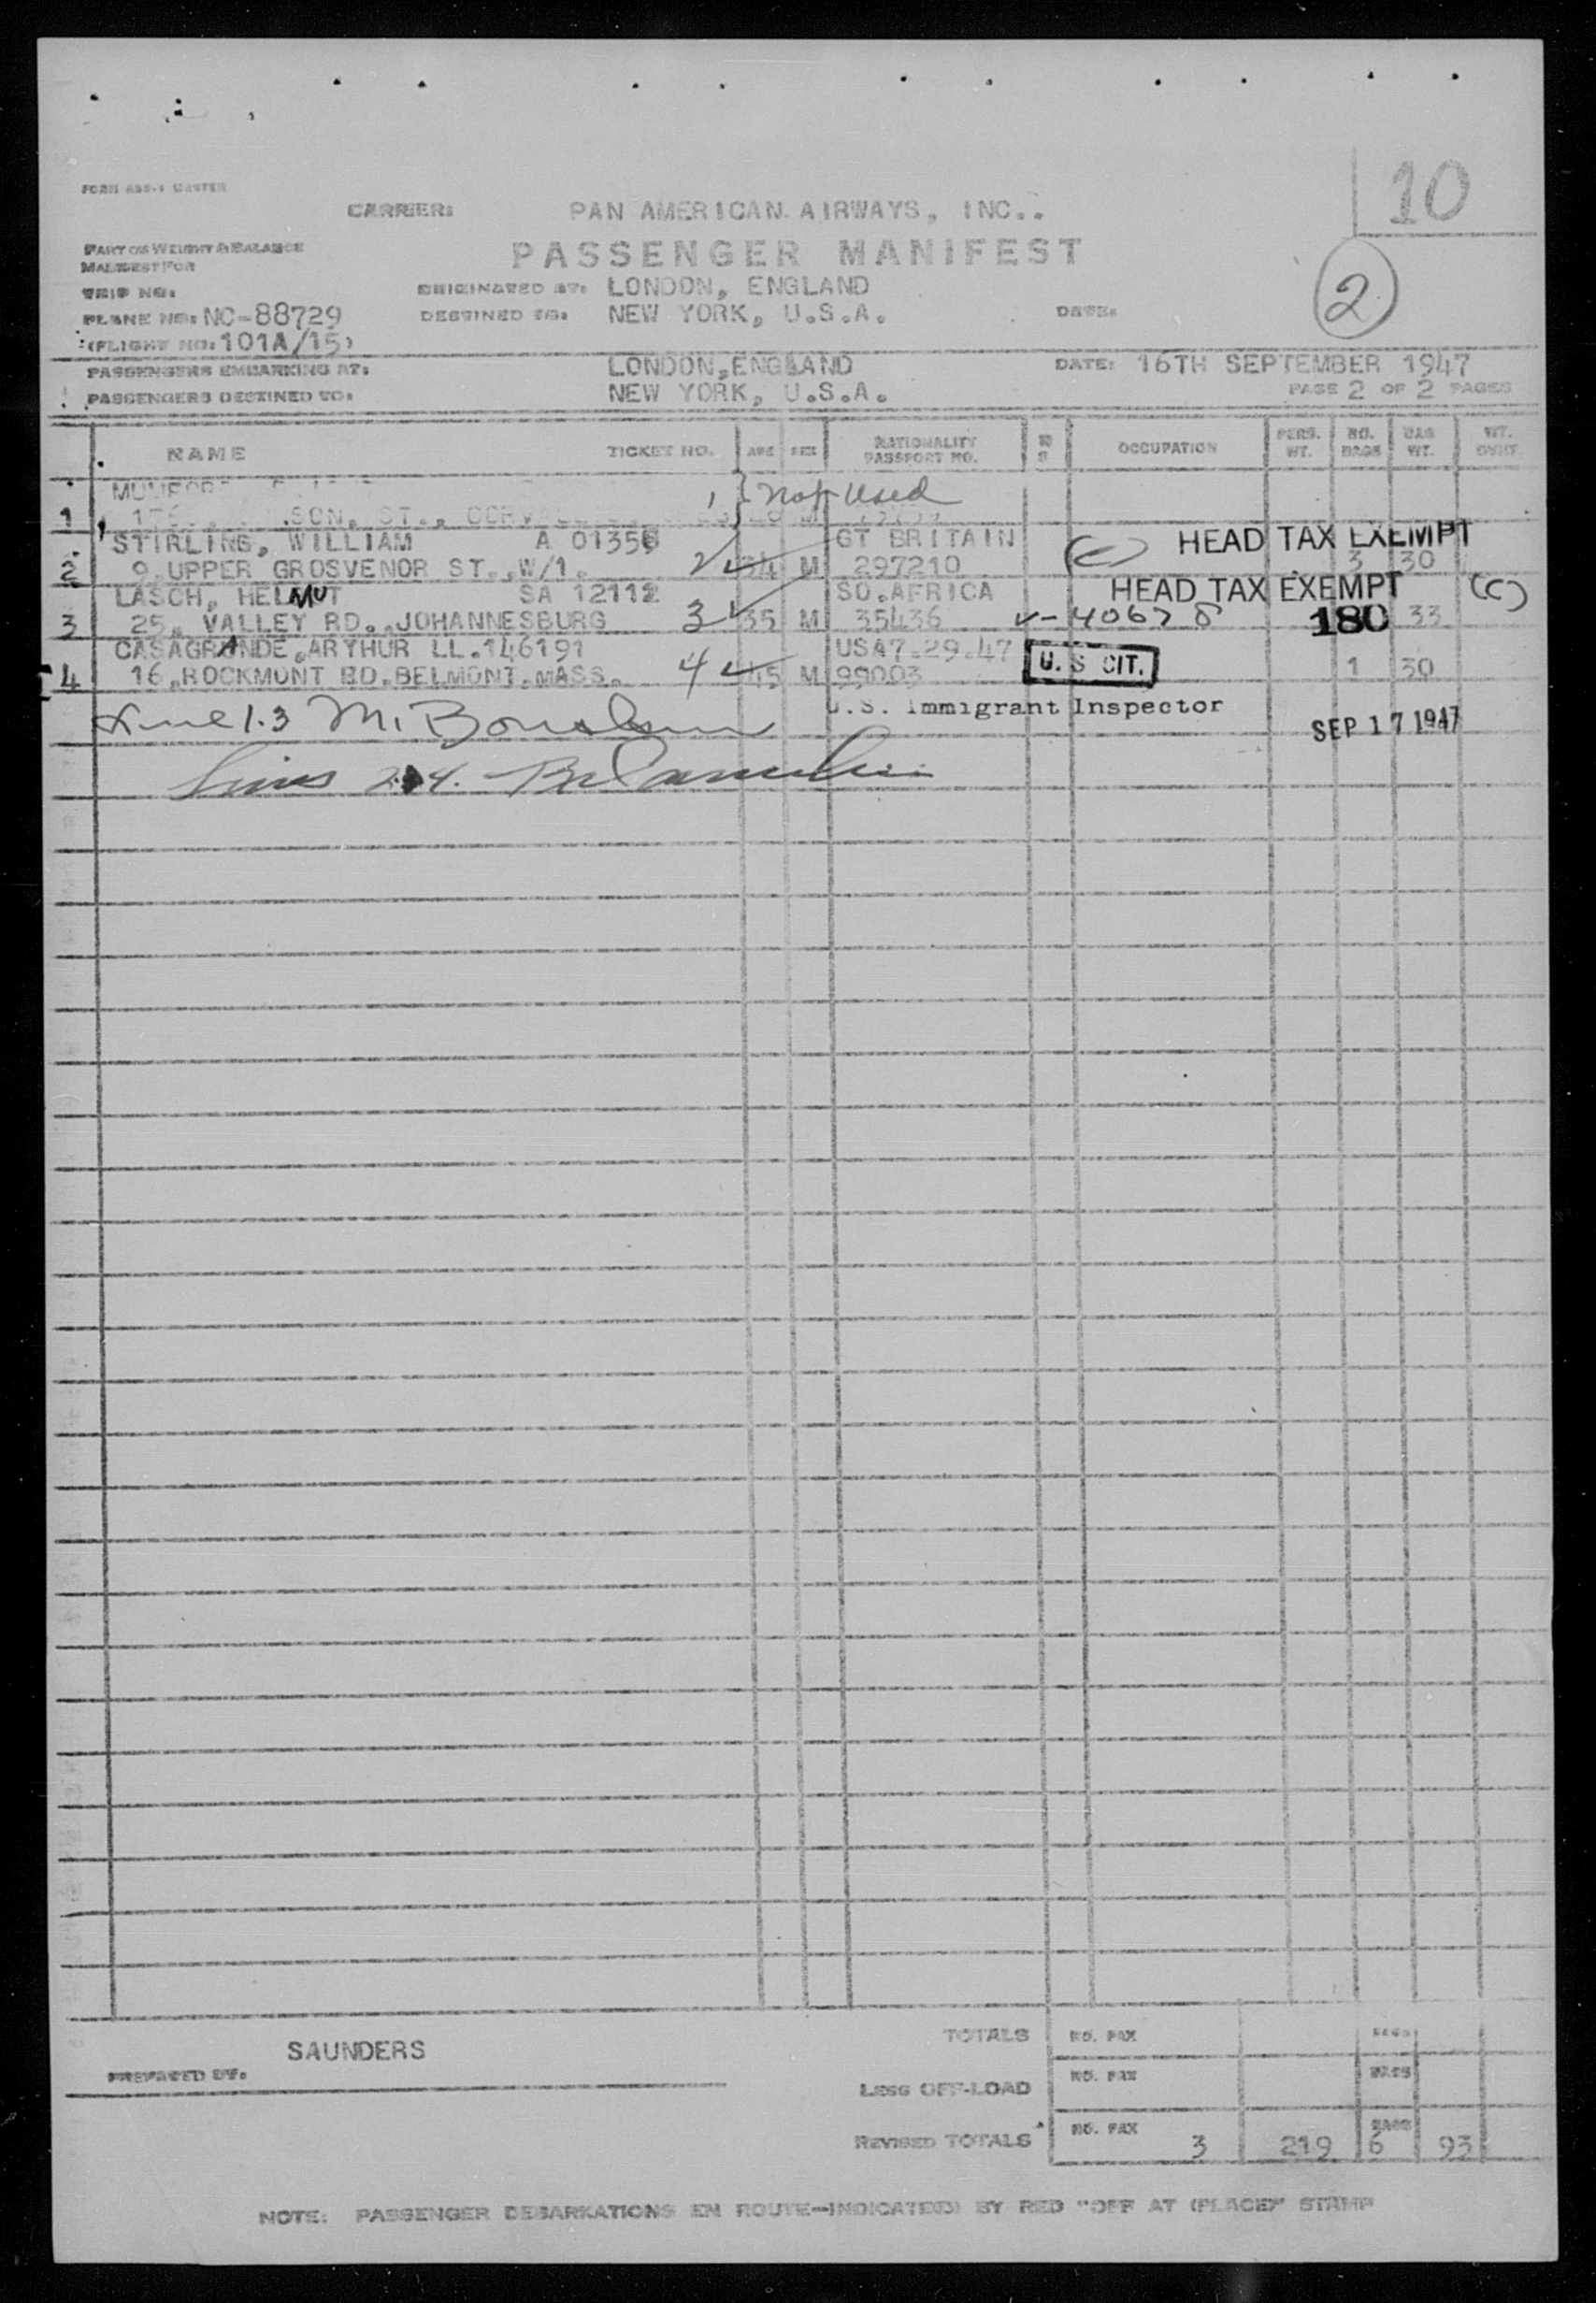 10
CARRIER: PAN AMERICAN AIRWAYS, INC..
PART OF WEIGHT & BALANCE
PASSENGER MANIFEST
MANIFEST FOR
TRIP NO:
ORIGINATED AT: LONDON, ENGLAND
2
PLANE NO: NC-88729
DESTINED TO: NEW YORK, U.S.A. DATE:
(FLIGHT NO: 101A/15)
PASSENGERS EMBARKING AT: LONDON, ENGLAND DATE: 16TH SEPTEMBER 1947
PASSENGERS DESTINED TO: NEW YORK, U.S.A. PAGE 2 OF 2 PAGES
NAME TICKET NO. AGE SEX NATIONALITY PASSPORT NO. OCCUPATION PERS. WT. NO. BAGS BAG WT. WT.
1 Not Used
1 SON, ST.,
STIRLING, WILLIAM A 01356 GT BRITAIN HEAD TAX EXEMPT
2 9 UPPER GROSVENOR ST., W/1. 2 34 M 297210 (C) 3 30
LASCH, HELMUT SA 12112 SO.AFRICA HEAD TAX EXEMPT (C)
3 25, VALLEY RD., JOHANNESBURG 3 35 M 35436 V-40678 180 33
CASAGRANDE, ARTHUR LL.146191 USA7.29.47 U.S CIT.
4 16, ROCKMONT RD. BELMONT. MASS. 4 45 M 99003 1 30
Line 1.3 M.
U.S. Immigrant Inspector
SEP 17 1947
Lines 2 4.
SAUNDERS
PREPARED BY:
TOTALS NO. PAX BAGS
LESS OFF-LOAD NO. PAX BAGS
REVISED TOTALS NO. PAX 3 219 BAGS 6 93
NOTE: PASSENGER DEBARKATIONS EN ROUTE—INDICATED BY RED "OFF AT (PLACE)" STAMP